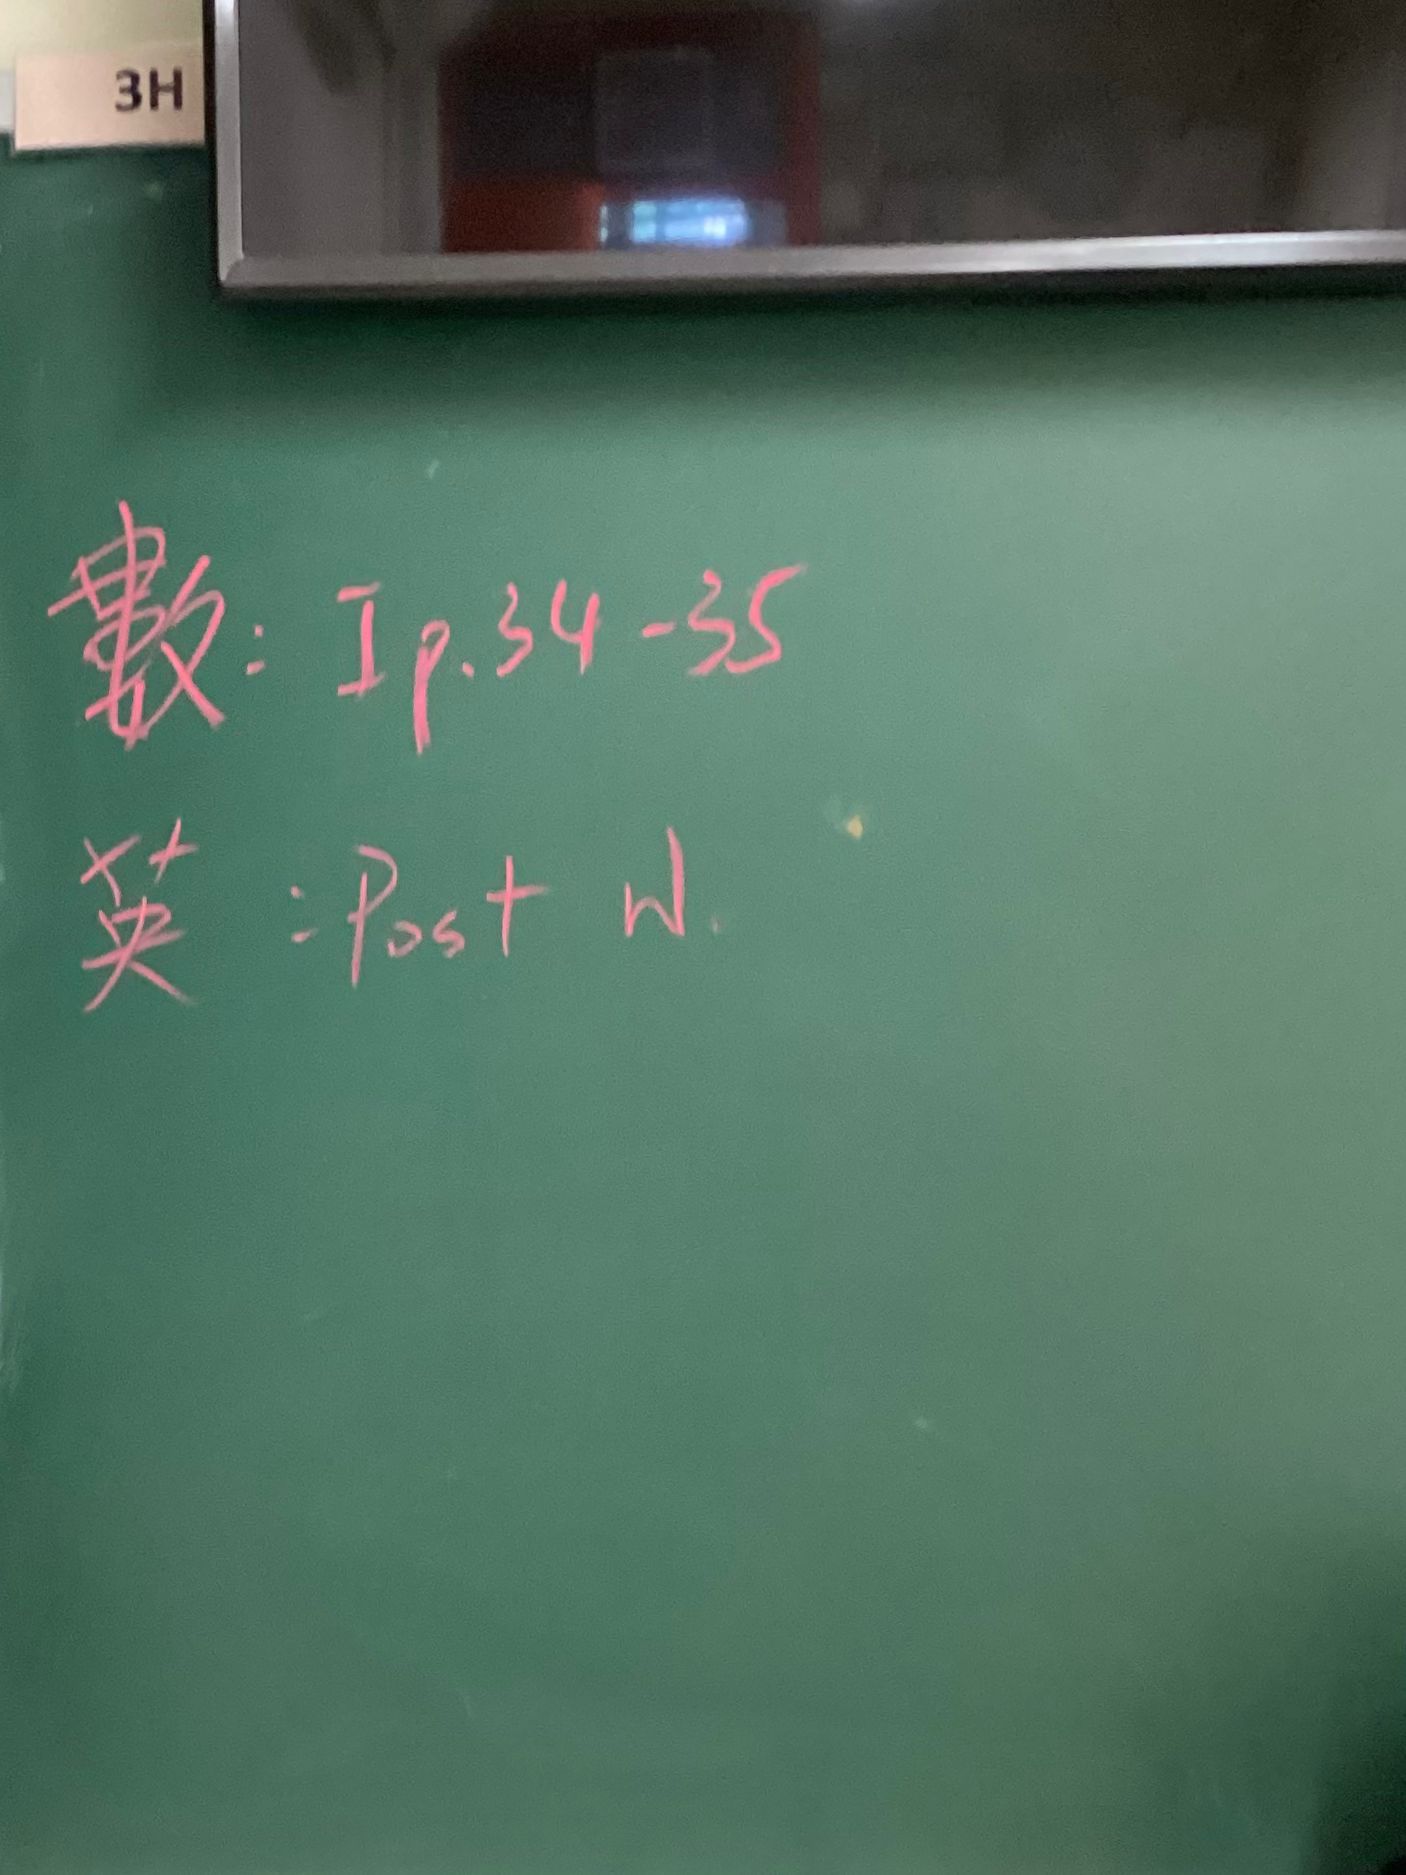 3H
數: I p.34-35
英: Post W.